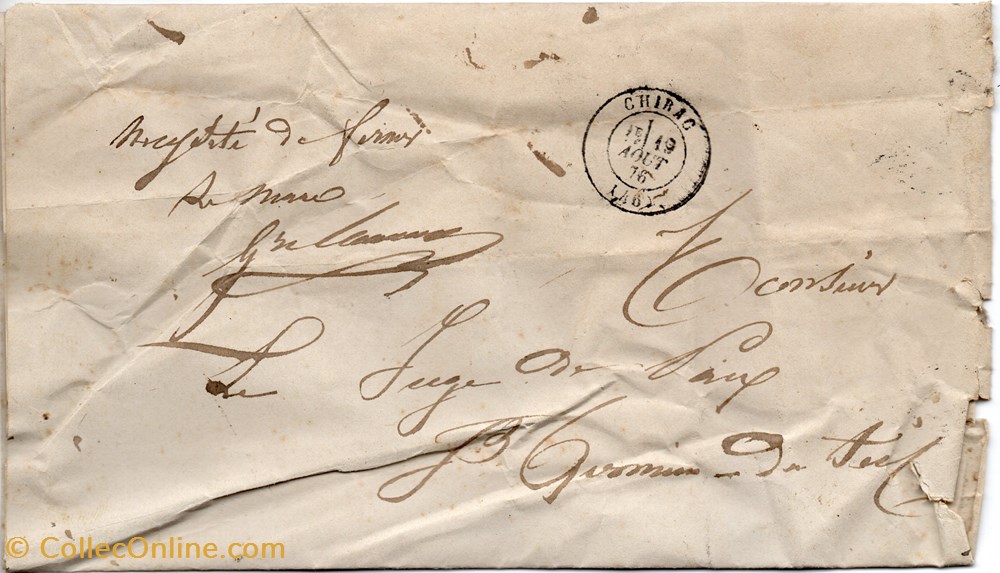 CHIRAC
1E 19
AOUT
76
(46)
Nécessité de fermer
Le Maire
Monsieur
Le Juge de Paix
St Germain du Teil
© CollecOnline.com